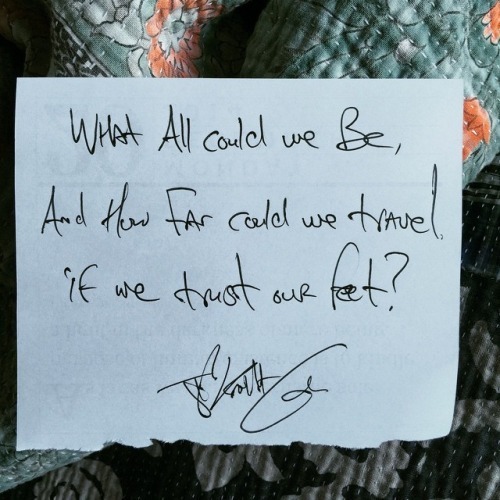 What All could we Be,
And How Far could we travel,
if we trust our feet?